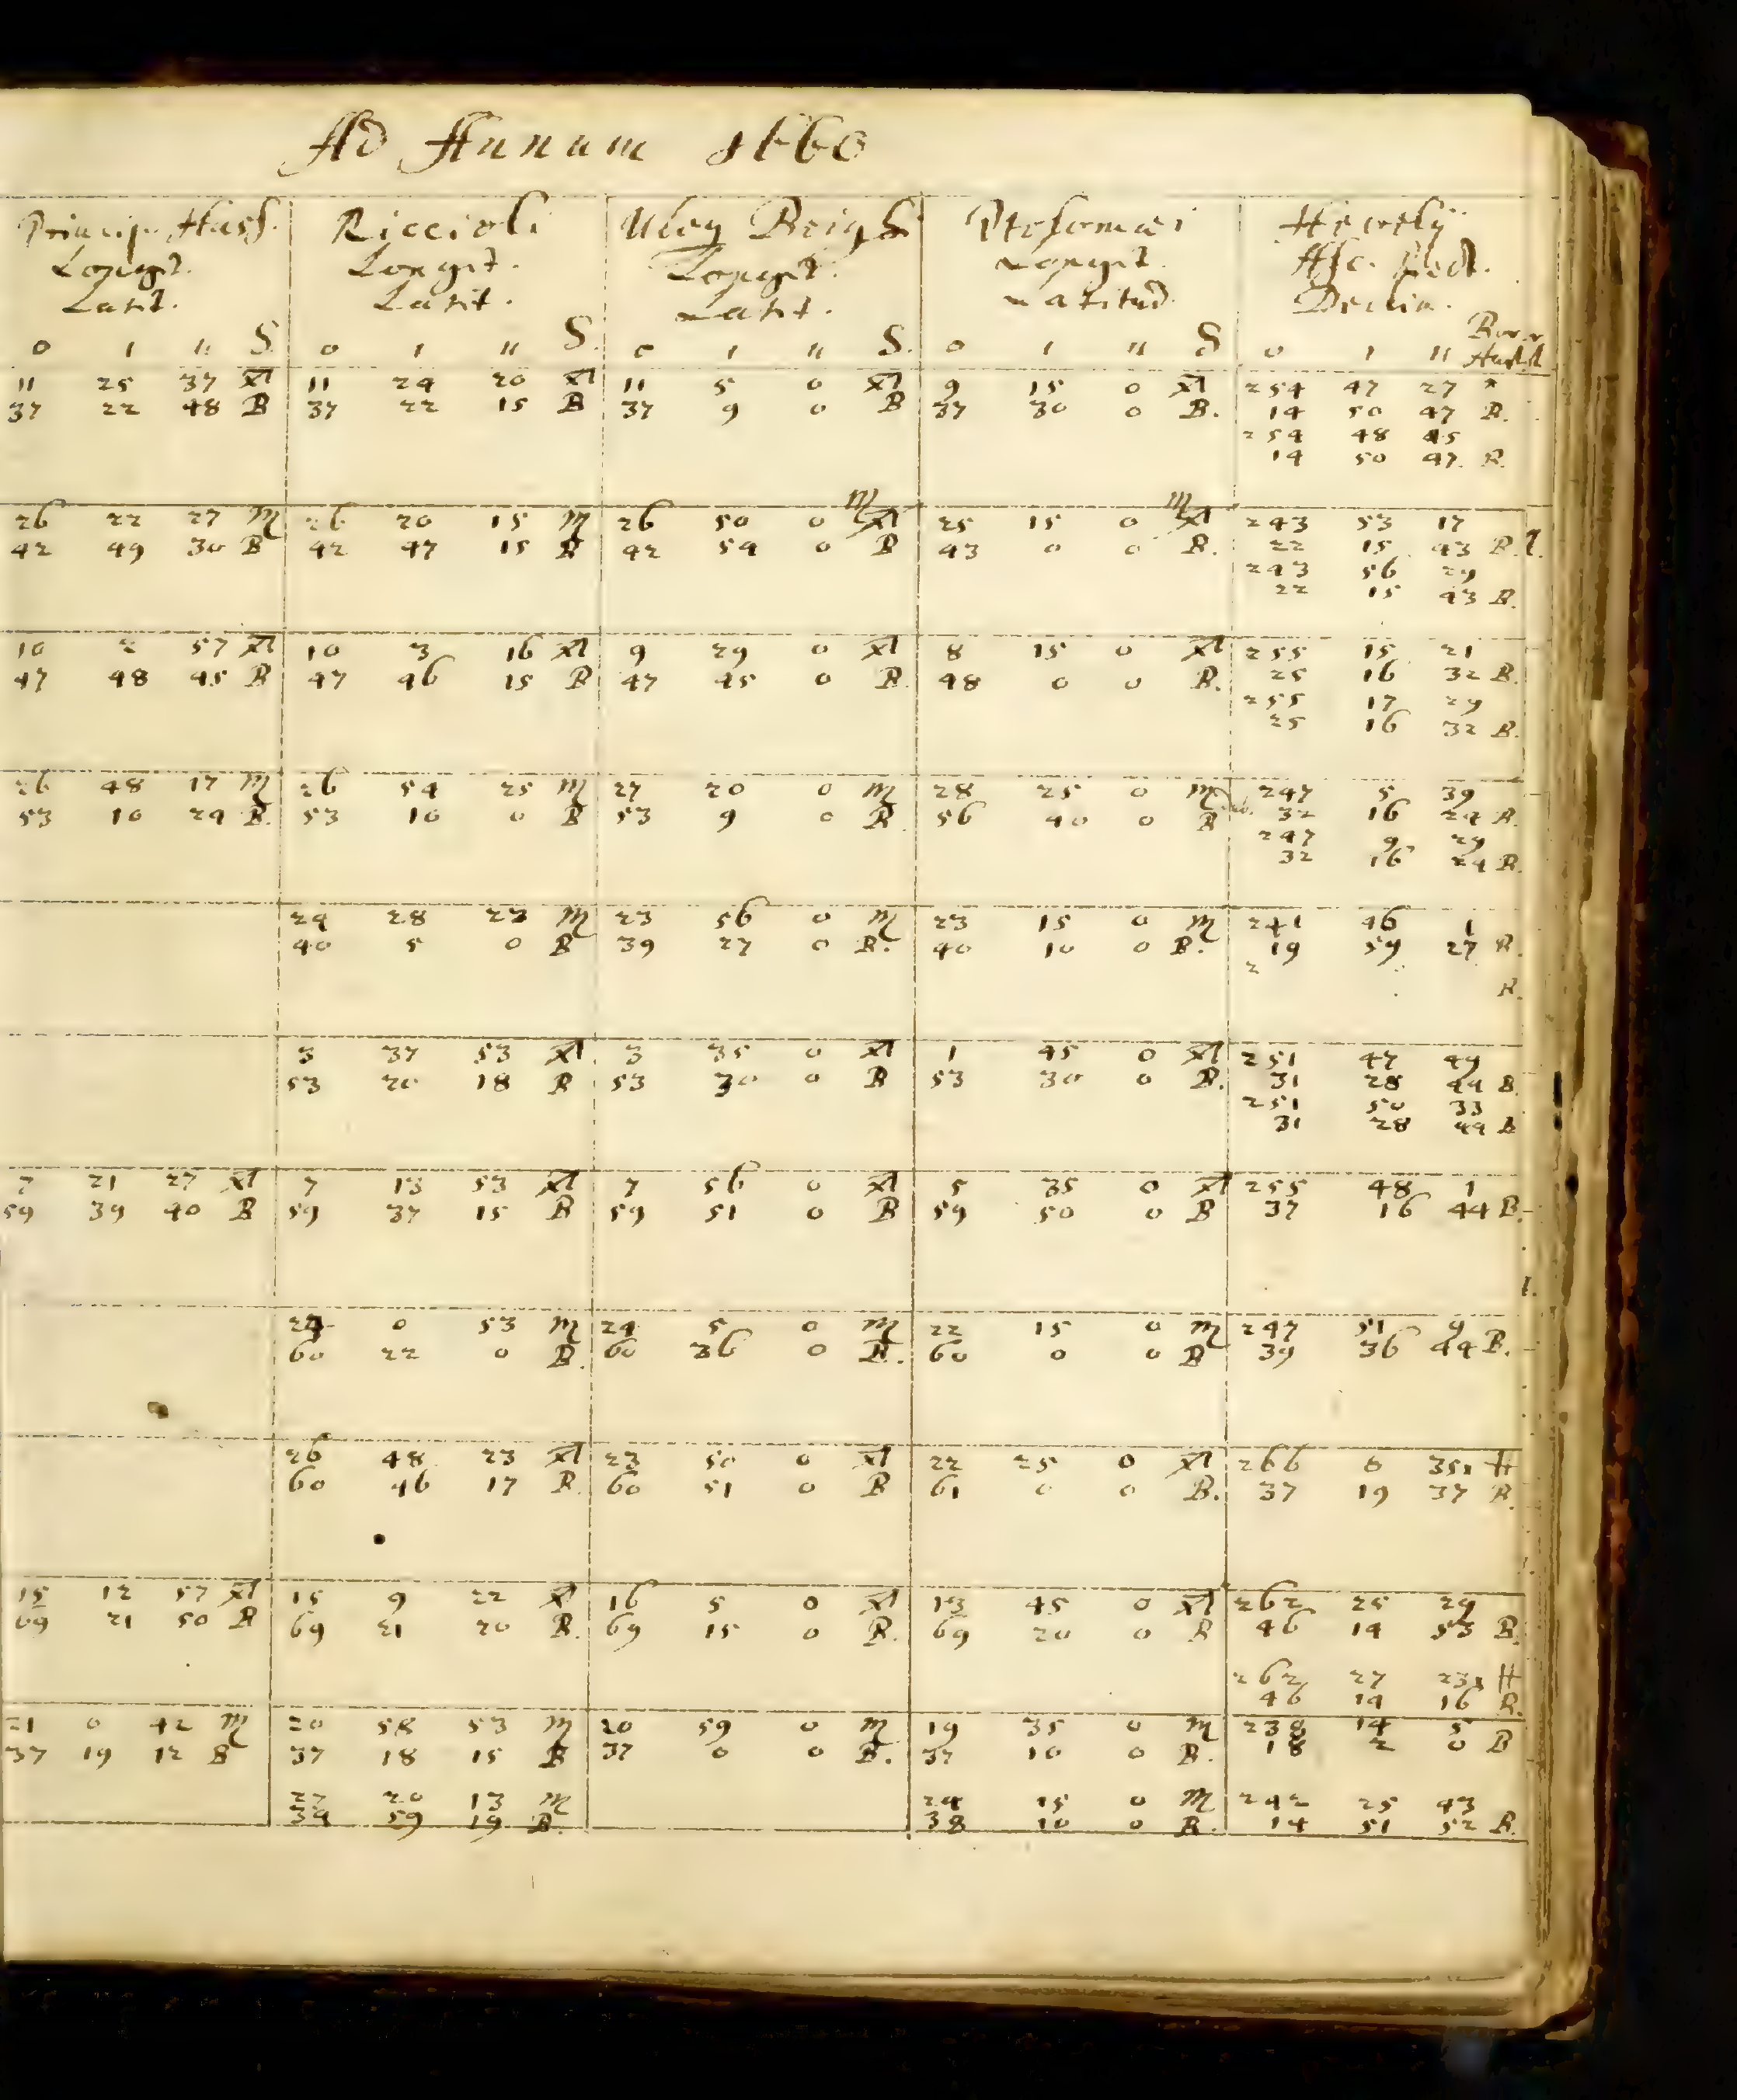 Ad Annum 1660
Princip. Hass. Riccioli Uleg Beighi Ptolomæi Hevelij
Longit. Longit. Longit. Longit. Asc. Rect.
Latit. Latit. Latit. Latitud. Declin.
0 ı ıı S. 0 ı ıı S. 0 ı ıı S. 0 ı ıı S 0 ı ıı Bor. Austr.
11 25 37 ♐ 11 24 20 ♐ 11 5 0 ♐ 9 15 0 ♐ 254 47 27 *
37 22 48 B 37 22 15 B 37 9 0 B 37 30 0 B. 14 50 47 B.
254 48 45
14 50 47. B.
♏ ♏
26 22 27 ♏ 26 20 15 ♏ 26 50 0 ♐ 25 15 0 ♐ 243 53 17
42 49 30 B 42 47 15 B 42 54 0 B 43 0 0 B. 22 15 43 B.
243 56 29
22 15 43 B.
10 2 57 ♐ 10 3 16 ♐ 9 29 0 ♐ 8 15 0 ♐ 255 15 21
47 48 45 B 47 46 15 B 47 45 0 B 48 0 0 B. 25 16 32 B.
255 17 29
25 16 32 B.
26 48 17 ♏ 26 54 25 ♏ 27 20 0 ♏ 28 25 0 ♏ 247 5 39
53 10 24 B. 53 10 0 B 53 9 0 B 56 40 0 B 32 16 24 B.
247 9 29
32 16 24 B.
24 28 22 ♏ 23 56 0 ♏ 23 15 0 ♏ 241 46 1
40 5 0 B 39 27 0 B. 40 10 0 B. 19 59 27 B.
2
B.
3 37 53 ♐ 3 35 0 ♐ 1 45 0 ♐ 251 47 49
53 20 18 B 53 30 0 B 53 30 0 B. 31 28 44 B.
251 50 33
31 28 44 B
7 21 27 ♐ 7 13 53 ♐ 7 56 0 ♐ 5 35 0 ♐ 255 48 1
59 39 40 B 59 37 15 B 59 51 0 B 59 50 0 B 37 16 44 B.
24 0 53 ♏ 24 5 0 ♏ 22 15 0 ♏ 247 51 9
60 22 0 B. 60 36 0 B. 60 0 0 B 39 36 44 B.
26 48 23 ♐ 23 50 0 ♐ 22 25 0 ♐ 266 0 35 H
60 46 17 B. 60 51 0 B 61 0 0 B. 37 19 37 B.
15 12 57 ♐ 15 9 22 ♐ 16 5 0 ♐ 13 45 0 ♐ 262 25 29
69 21 50 B 69 21 20 B. 69 15 0 B. 69 20 0 B 46 14 53 B.
262 27 23 H
46 14 16 B.
21 0 42 ♏ 20 58 53 ♏ 20 59 0 ♏ 19 35 0 ♏ 238 14 5
37 19 12 B 37 18 15 B 37 0 0 B. 37 10 0 B. 18 2 0 B
27 20 13 ♏ 24 15 0 ♏ 242 25 43
34 59 19 B. 38 10 0 B. 14 51 52 B.